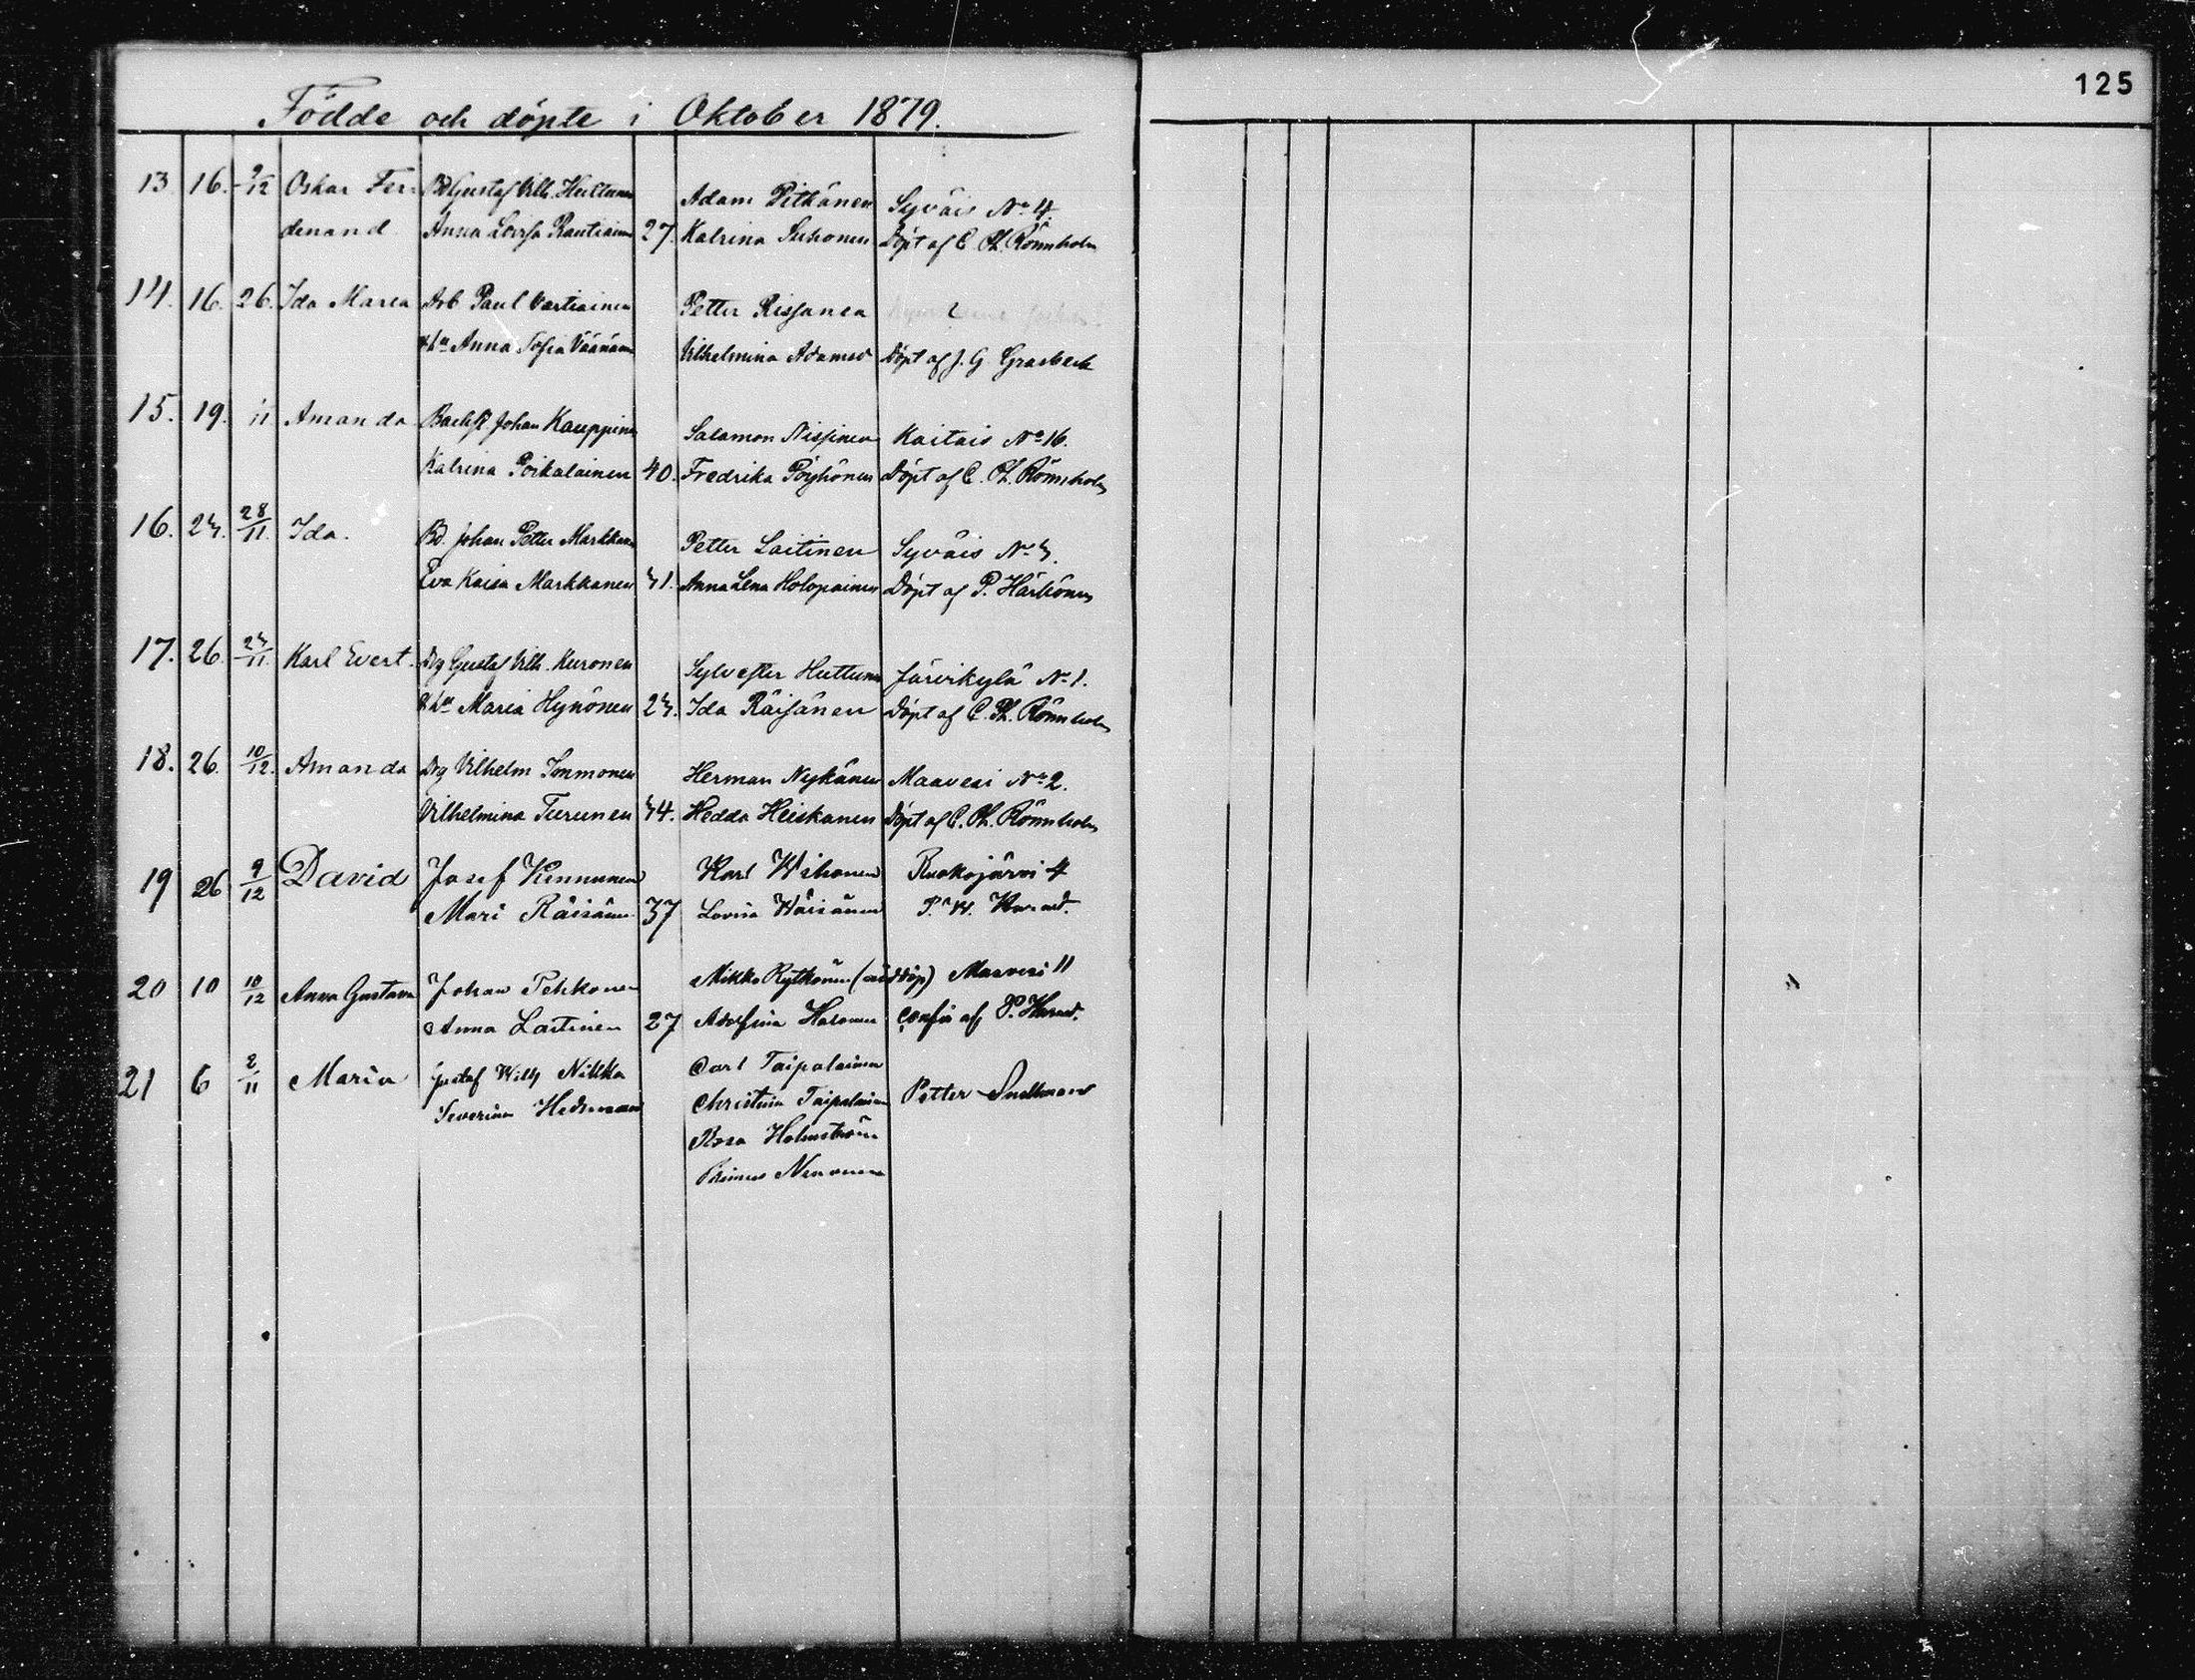 125
Födde och döpte i Oktober 1879.
13. 16. 9/12 Oskar Fer- Bd Gustaf Vilh. Huttunen Adam Pitkänen Syväis No 4.
denand Anna Lovisa Rautiainen 27. Katrina Suhonen Döpt af C. Th. Rönnholm
14. 16. 26. Ida Maria Arb Paul Vartiainen Petter Rissanen
Anna Sofia Väänänen Vilhelmina Adamsd Döpt af J. G Grasbeck
15. 19. /11 Amanda Johan Kauppinen Salamon Nissinen Kaitais No 16.
Katrina Poikalainen 40. Fredrika Pöyhönen Döpt af C. Th. Rönnholm
16. 25. 28/11. Ida. Bd. Johan Petter Markkanen Petter Laitinen Syväis No 5.
Eva Kaisa Markkanen 51. Anna Lena Holopainen Döpt af P. Härkönen
17. 26. 25/11. Karl Evert. Drg Gustaf Vilh. Kuronen Sylvester Huttunen Järvikylä No 1.
Maria Hynönen 25. Ida Räisänen Döpt af C. Th. Rönnholm
18. 26. 10/12. Amanda Drg Vilhelm Immonen Herman Nykänen Maavesi No 2.
Vilhelmina Turunen 54. Hedda Heiskanen Döpt af C. Th. Rönnholm
19 26 9/12 David Josef Kinnunen Karl Wihonen Ruokojärvi 4
Mari Räisänen 37 Lovisa Wäisänen
20 10 10/12 Anna Gustava Johan Pehkonen Mikko Rytkönen (nöddöp) Maavesi 11
Anna Laitinen 27 Adolfina Halonen af P.
21 6 2/11 Maria Gustaf Nikka Carl Taipalainen
Severina Hedman Christina Taipalainen Petter Snellman
Rosa Holmström